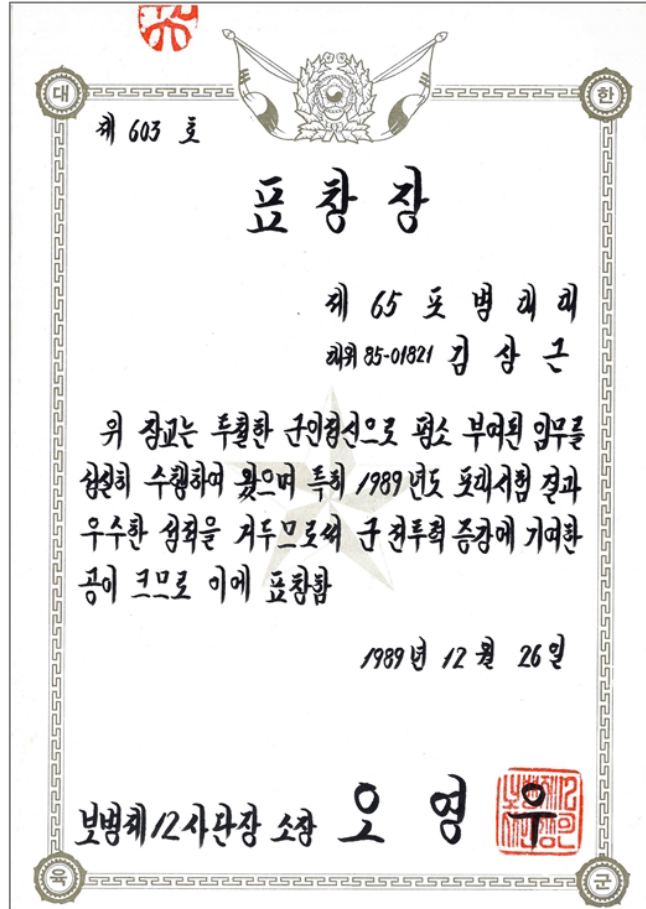 대 한
제 603 호
표 창 장
제 65 포 병 대 대
대위 85-01821 김 상 근
위 장교는 투철한 군인정신으로 평소 부여된 임무를
성실히 수행하여 왔으며 특히 1989년도 포대시험 결과
우수한 성적을 거두므로써 군 전투력 증강에 기여한
공이 크므로 이에 표창함
1989년 12월 26일
보병제12사단장 소장 오 영 우
육 군